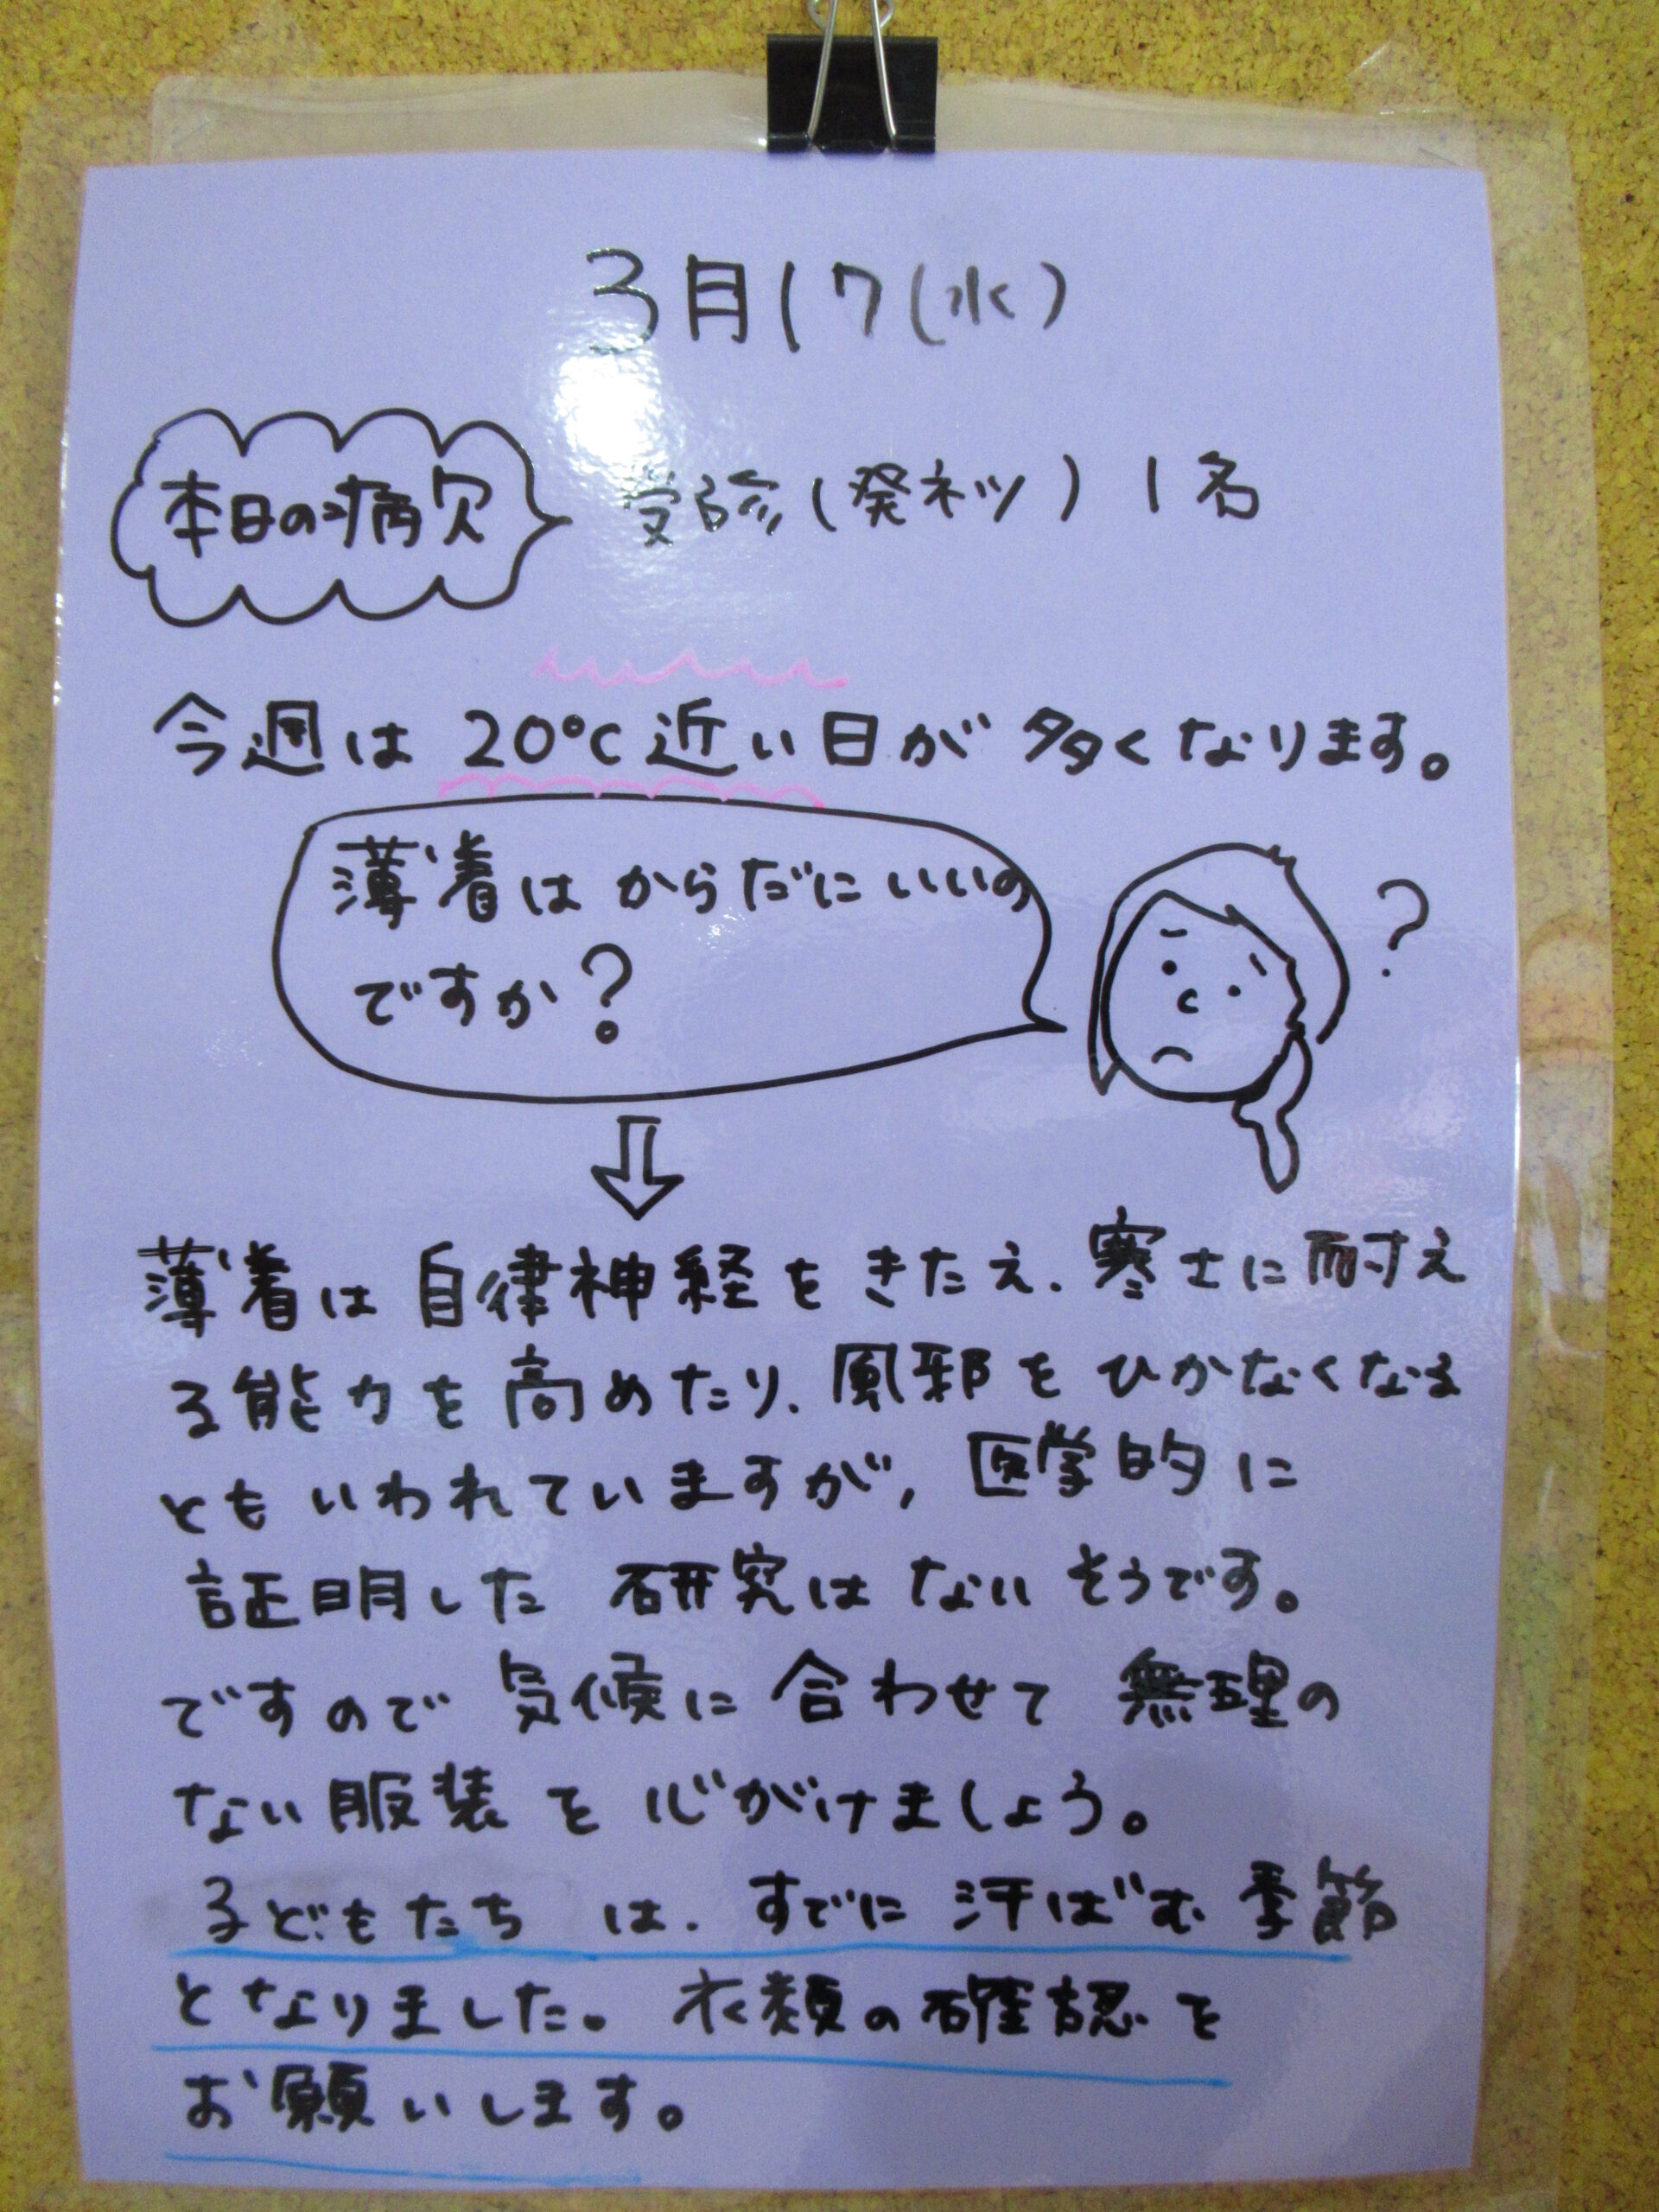 3月17(水)
本日の病欠
受診(発ネツ) 1名
今週は 20℃近い日が 多くなります。
薄着は からだに いいの
ですか?
?
薄着は 自律神経を きたえ、寒さに耐え
る能力を 高めたり、風邪を ひかなくなる
ともいわれていますが、医学的に
証明した 研究は ないそうです。
ですので 気候に 合わせて 無理の
ない服装 を 心がけましょう。
子どもたち は、すでに 汗ばむ 季節
となりました。 衣類の確認を
お願いします。